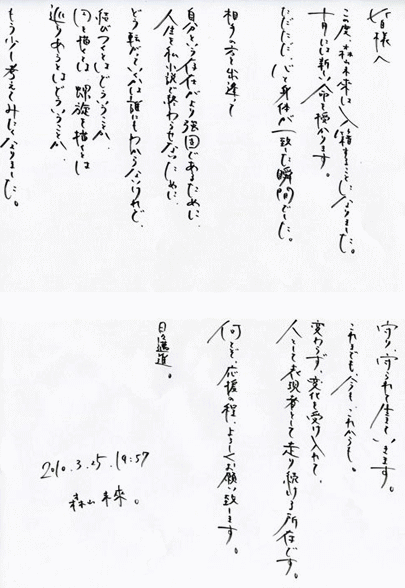 皆様へ
この度、森山未來は入籍することになりました。
十月には新しい命も授かります。
ただただ、心と身体が一致した瞬間でした。
相手の方と出逢って
自分という存在がより強固であるために、
人生を私小説で終わらせないために、
どう転がっていくかは誰にもわからないけれど、
結びつくとはどういうことか、
円を描くとは 螺旋を描くとは
巡りあうとはどういうことか、
もう少し考えてみたくなりました。
守り、守られて生きていきます。
これまでも、今も、これからも。
変わらず、変化を受け入れて、
人として表現者として走り続ける所存です。
何とぞ、応援の程、よろしくお願い致します。
日々邁進。
2010.3.25.19:57
森山未來。